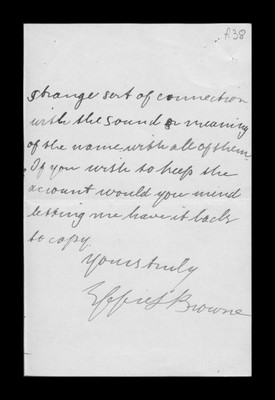 A38
strange sort of connection
with the sound or meaning
of the name with all of them.
If you wish to keep the
account would you mind
letting me have it back
to copy.
Yours truly
Effie Browne